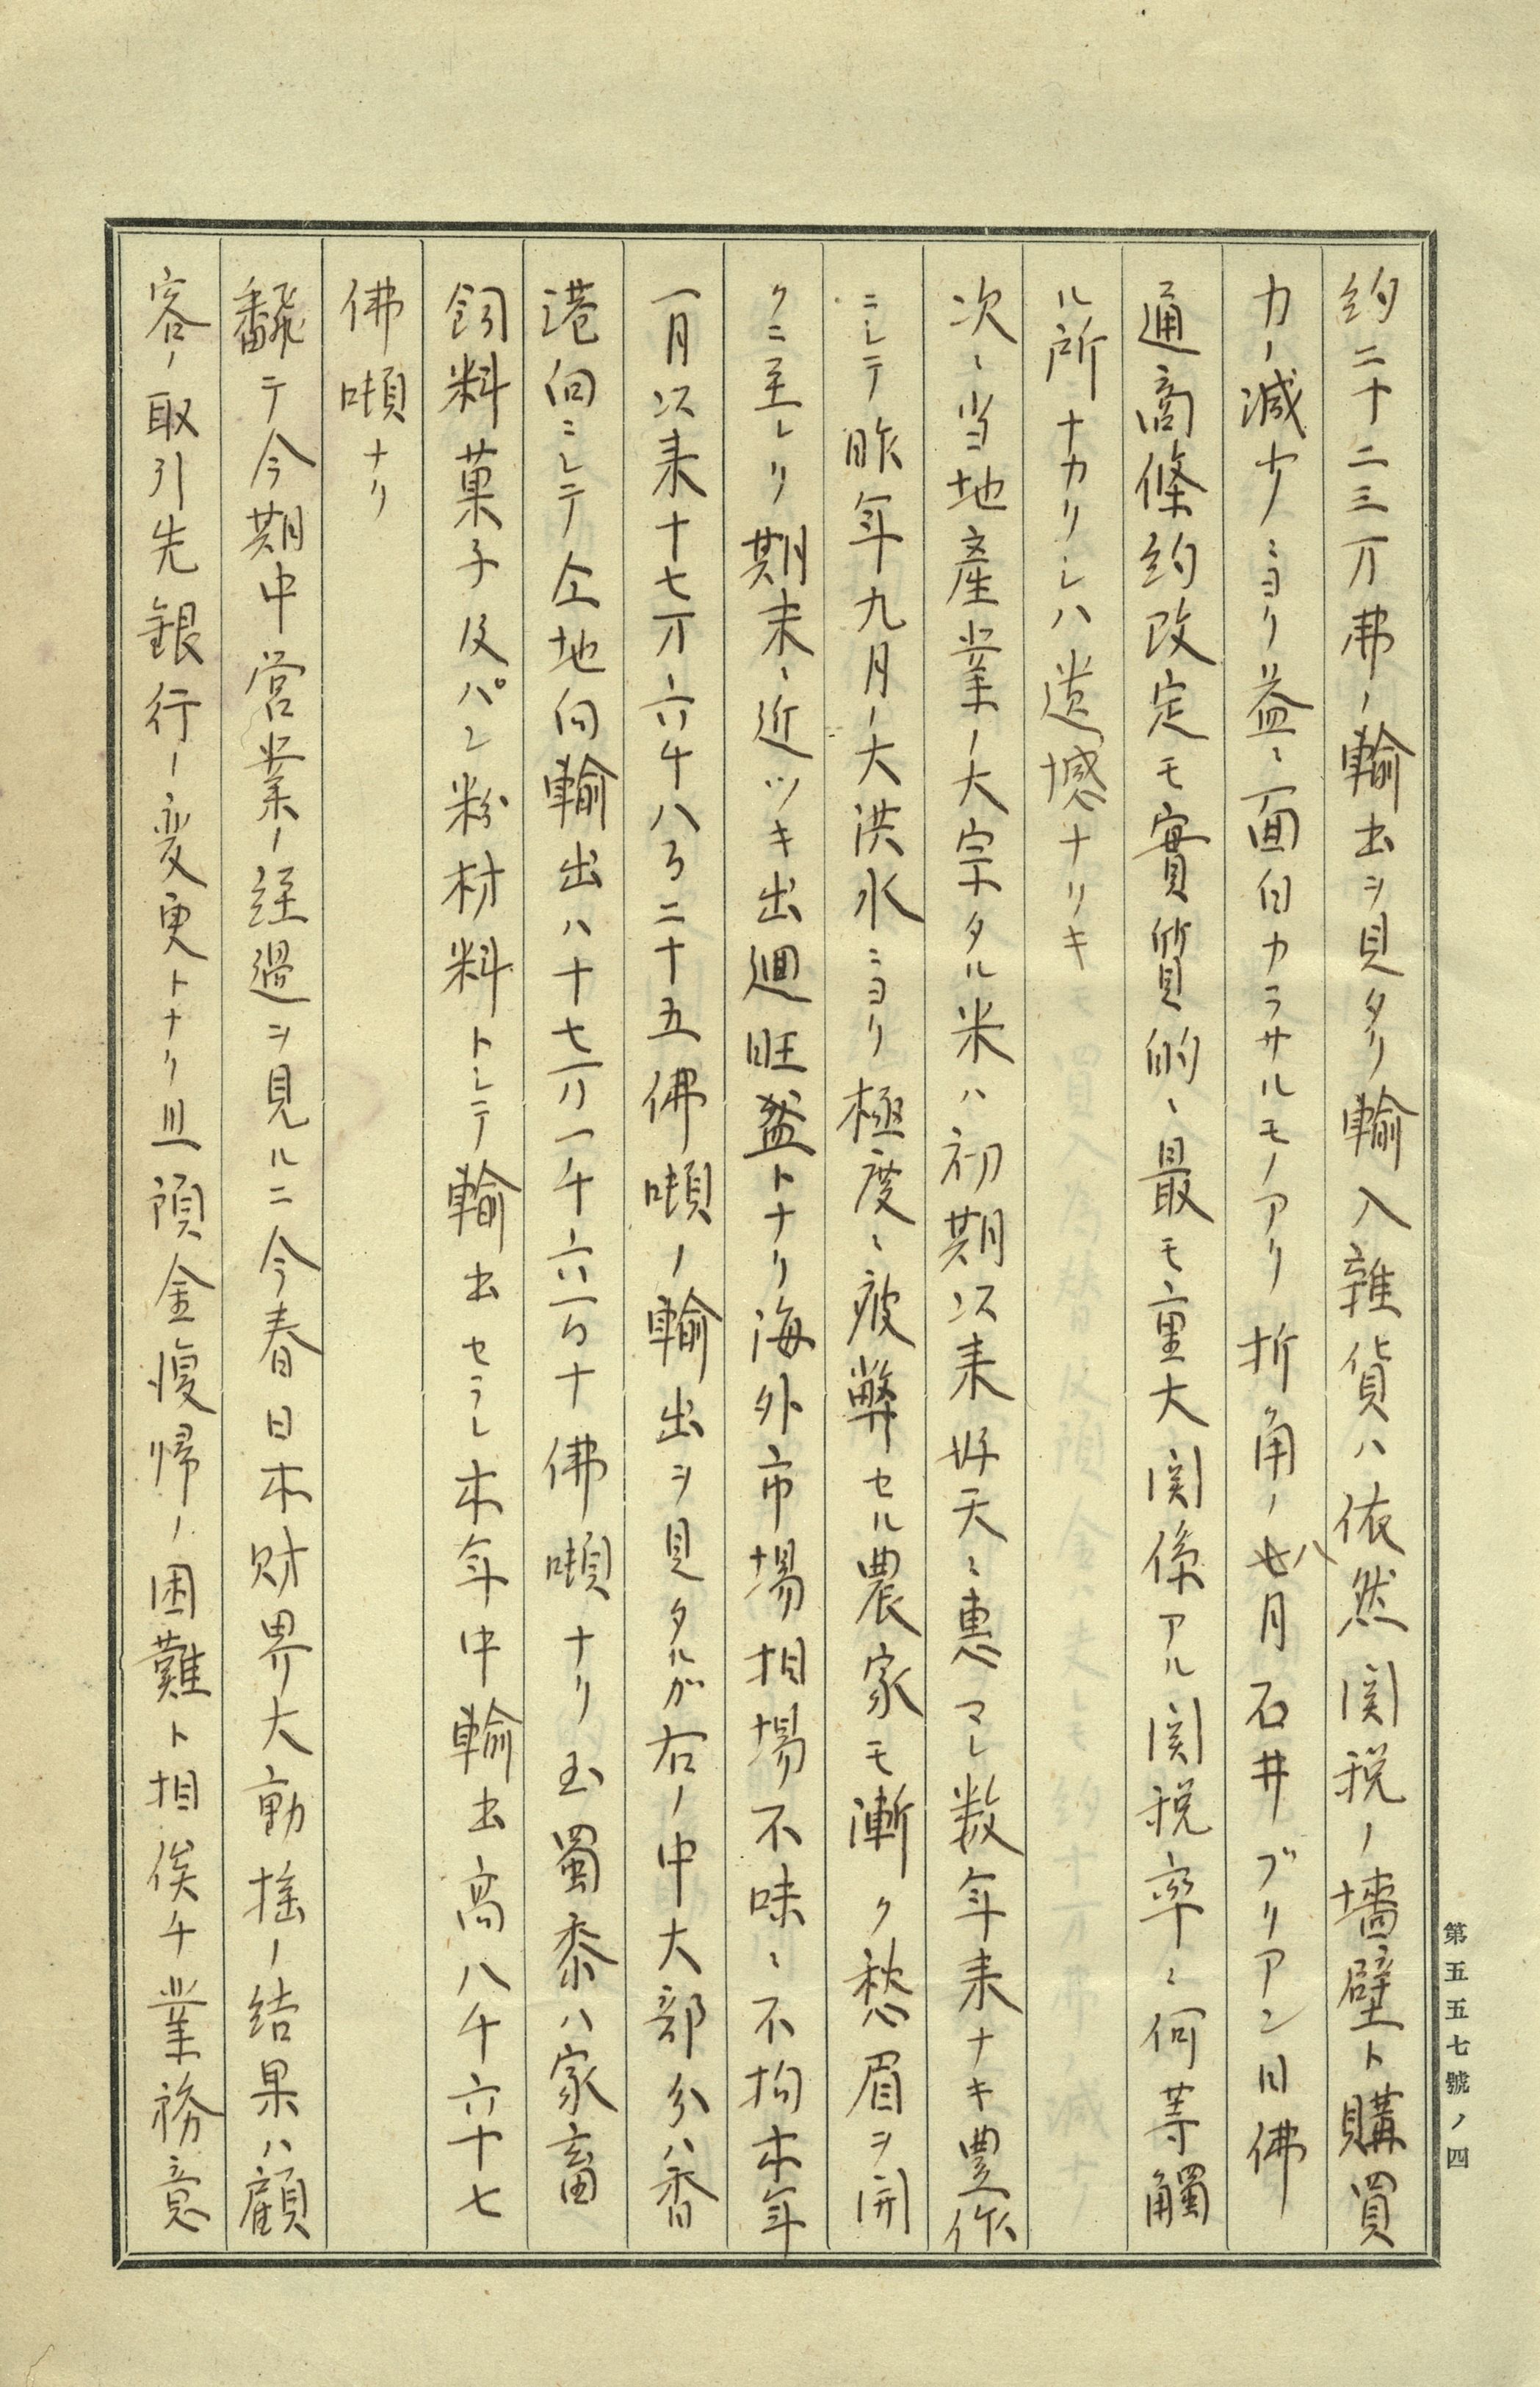 約二十二三万弗ノ輸出ヲ見タリ輸入雑貨ハ依然関税ノ墻壁ト購買
力ノ減少ニヨリ益々面白カラサルモノアリ折角ノ八月石井ブリアン日佛
通商條約改定モ實質的ニ最モ重大関係アル関税率ニ何等觸
ル所ナカリシハ遺憾ナリキ
次ニ当地産業ノ大宗タル米ハ初期以来好天ニ惠マレ数年来ナキ豊作
ニシテ昨年九月ノ大洪水ニヨリ極度ニ疲弊セル農家モ漸ク愁眉ヲ開
クニ至レリ期末ニ近ツキ出廻旺盛トナリ海外市場相場不味ニ不拘本年
一月以来十七万六千八百二十五佛噸ノ輸出ヲ見タルガ右ノ中大部分ハ香
港向ニシテ仝地向輸出ハ十七万一千六百十佛噸ナリ玉蜀黍ハ家畜
飼料菓子及パン粉材料トシテ輸出セラレ本年中輸出高八千六十七
佛噸ナリ
飜テ今期中営業ノ経過ヲ見ルニ今春日本財界大動揺ノ結果ハ顧
客ノ取引先銀行ノ変更トナリ且預金復帰ノ困難ト相俟チ業務意
第五五七號ノ四